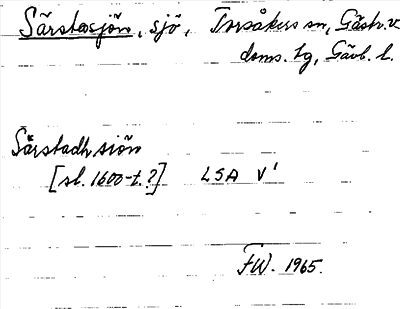 Särstasjön, sjö, Torsåkers sn, Gästr. v.
doms. tg, Gävl. l.
Särstadh siön
[sl. 1600-t.?] LSA V'
FW. 1965.